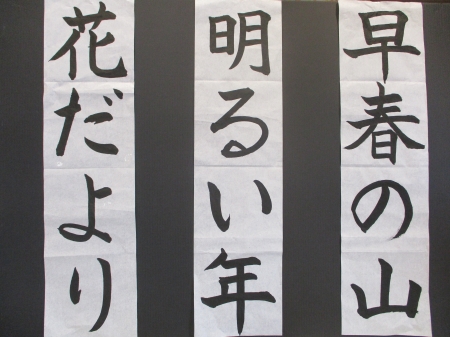 早春の山
明るい年
花だより